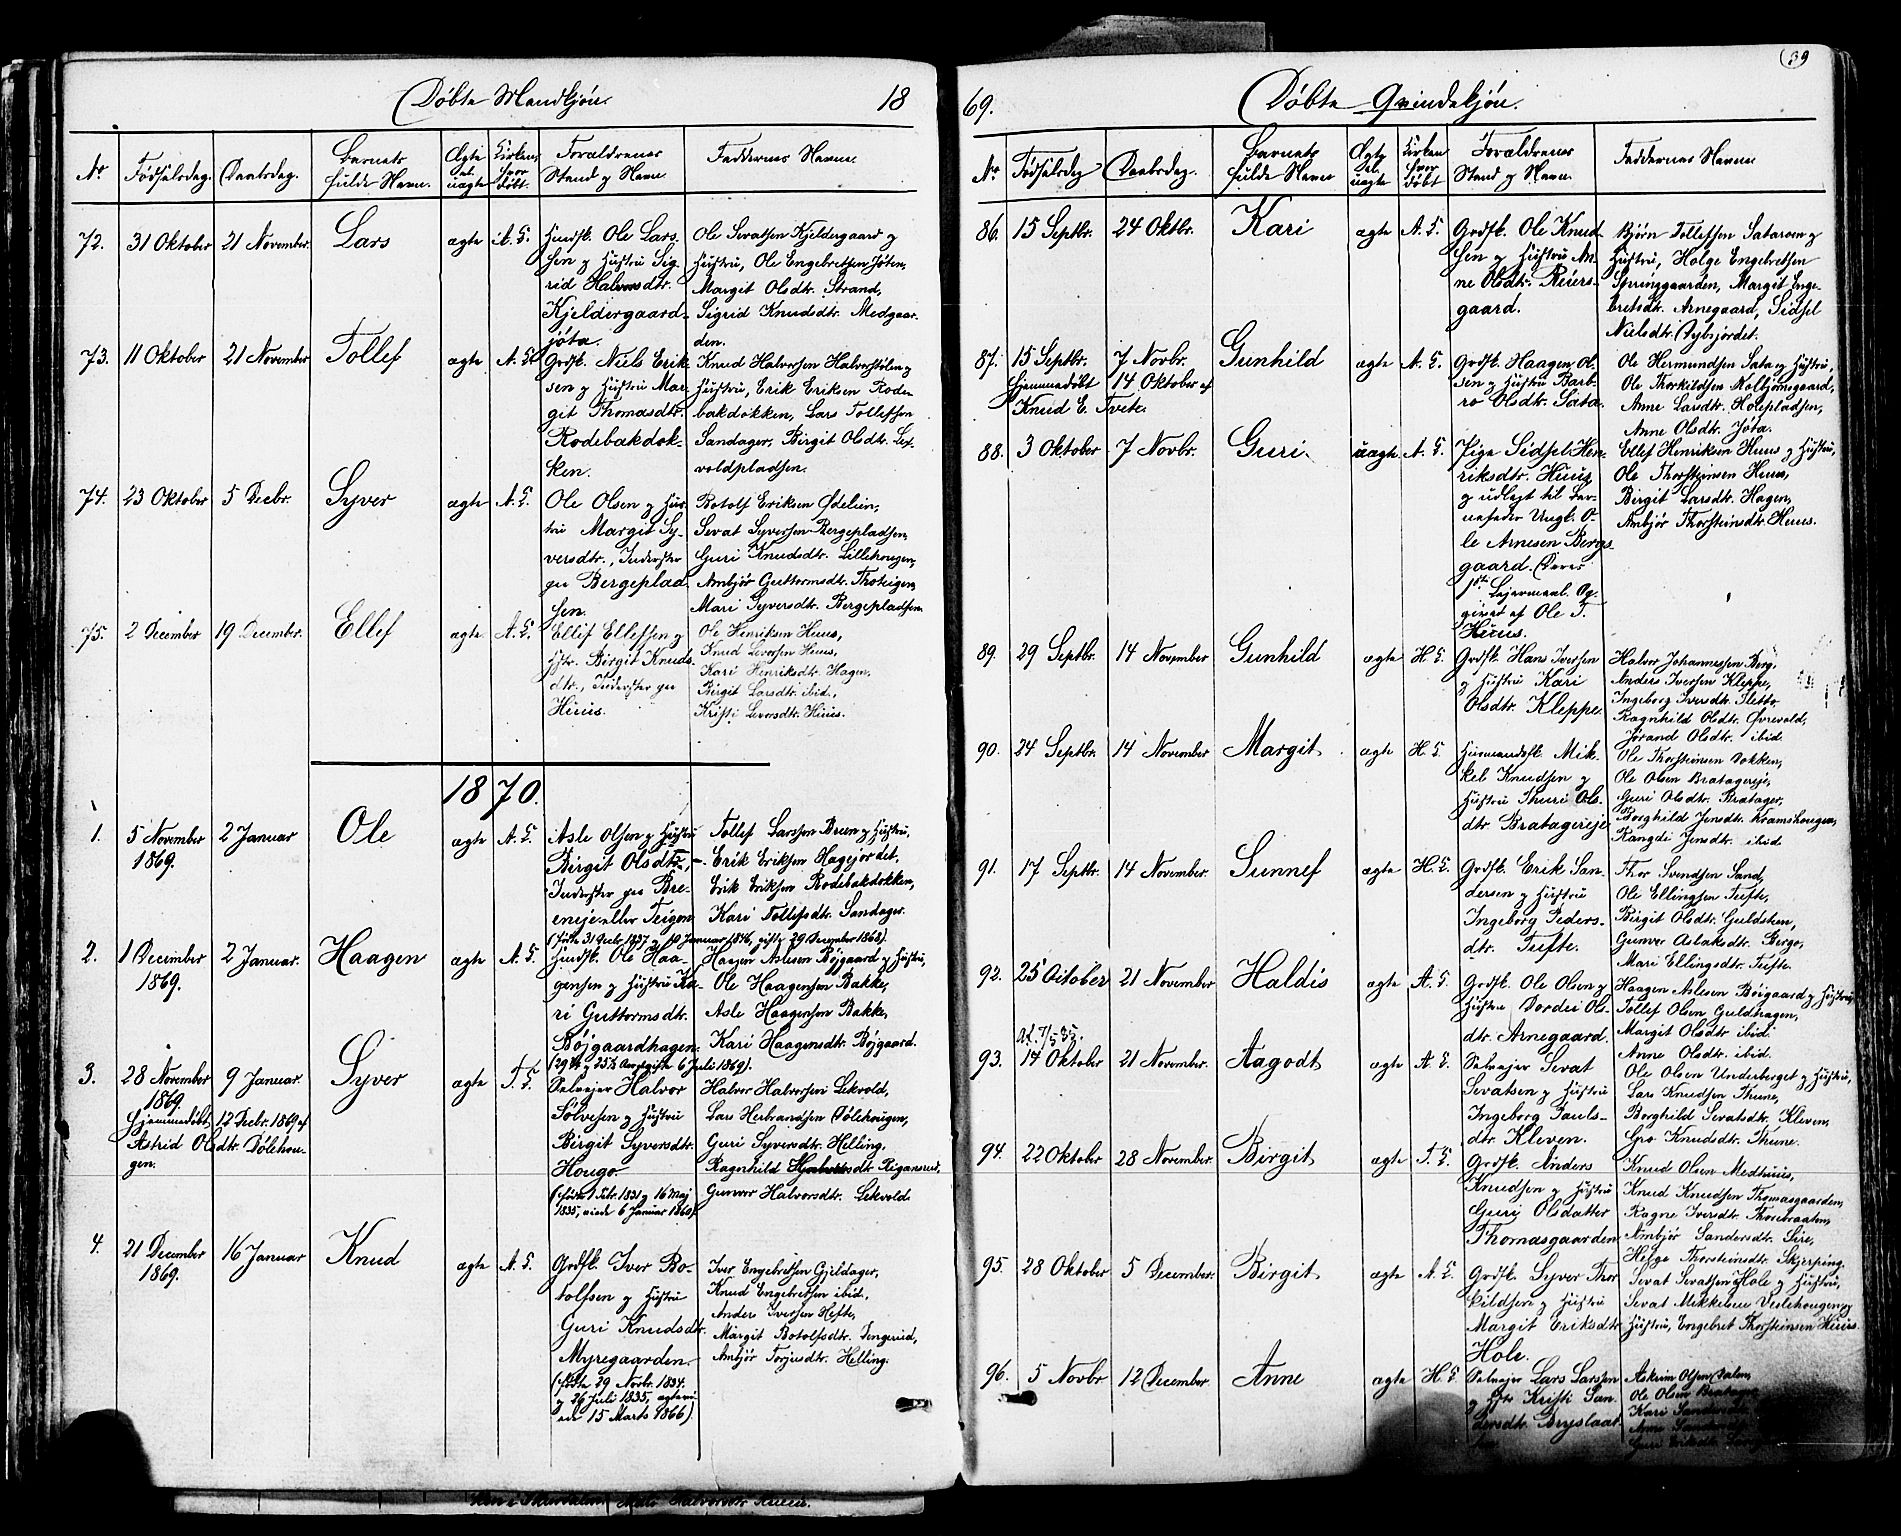 Døbte Mandkjøn. 18
No
Fødselsdag.
Daabsdag.
Barnets fulde Navn.
Ægte el. uægte
Kirken, hvor døbt.
Forældrenes Stand og Navn.
Faddernes Navne
72. 31 Oktober 21 November. Lars ægte A. K.
Husfk. Ole Lars-
sen og Hustru Sig-
rid Halvorsdtr.
Kjeldergaard-
jøta.
Ole Sevatsen Kjeldergaard og
Hustru, Ole Engebretsen Jøten,
Margit Olsdtr. Strand,
Sigrid Knudsdtr. Medgaar-
den.
73. 11 Oktober 21 November Tollef ægte A. K.
Grdfk. Niels Erik-
sen og Hustru Mar-
git Thomasdtr.
Rodebakdok-
ken.
Knud Halvorsen Halvorstølen og
Hustru, Erik Eriksen Rode-
bakdokken, Lars Tollefsen
Sandager, Birgit Olsdtr. Lek-
voldpladsen.
74. 23 Oktober 5 Decbr. Syver ægte A. K.
Ole Olsen og Hus-
tru Margit Sy-
versdtr., Inderster
paa Bergeplad-
sen.
Botolf Eriksen Ødelien,
Sevat Syversen Bergepladsen,
Guri Knudsdtr. Lillehougen,
Ambjør Guttormsdtr. Thoteigen,
Mari Syversdtr. Bergepladsen.
75. 2 December 19 December. Ellef ægte A. K.
Ellef Ellefsen og
Hstr. Birgit Knuds-
dtr., Inderster paa
Huus.
Ole Henriksen Huus,
Knud Leversen Huus,
Kari Henriksdtr. Hagen,
Birgit Larsdtr. ibid.,
Kristi Leversdtr. Huus.
1870.
1. 5 November 1869. 2 Januar Ole ægte A. K.
Asle Olsen og Hustru
Birgit Olsdtr.,
Inderster paa Bre-
eneje eller Teigen
Tollef Larssen Breen og Hustru,
Erik Eriksen Hagejordet,
Erik Eriksen Rodebakdokken,
Kari Tollefsdtr. Sandager.
(fødte 31 Decbr. 1837 og 10 Januar 1846, gifte 29 December 1868).
2. 1 December 1869. 2 Januar. Haagen ægte A. K.
Husfk. Ole Haa-
gensen og Hustru Ka-
ri Guttormsdtr.
Bøjgaardhagen.
Haagen Aslesen Bøjgaard og Hustru,
Ole Haagensen Bakke,
Asle Haagensen Bakke,
Kari Haagensdtr. Bøjgaard.
3. 28 November 1869. 9 Januar. Syver ægte T. K.
Hjemmedøbt 12 Decbr. 1869 af
Astrid Olsdtr. Dølehou-
gen.
Selvejer Halvor
Sølvesen og Hustru
Birgit Syversdtr.
Hougo
(fødte 1 Febr. 1831 og 16 Maj
1835, viede 6 Januar 1860).
Halvor Halvorsen Lekvold,
Lars Herbrandsen Dølehougen,
Guri Syversdtr. Helling,
Gunvor Halvorsdtr. Lekvold.
4. 21 December 1869. 16 Januar Knud ægte A. K.
Grdfk. Iver Bo-
tolfsen og Hustru
Guri Knudsdtr.
Myregaarden.
(fødte 29 Novbr. 1834
og 26 Juli 1835, ægtevi-
ede 15 Marts 1866).
Iver Engebretsen Gjeldager,
Knud Engebretsen ibid.,
Anders Iversen Hefte,
Margit Botolfsdtr. Dengerud,
Ambjør Torjusdtr. Helling.
69. Døbte Qvindekjøn. 39
No
Fødselsdag
Daabsdag.
Barnets fulde Navn
Ægte el. uægte
Kirken hvor døbt
Forældrenes Stand og Navn.
Faddernes Navne
86. 15 Septbr. 24 Oktbr. Kari ægte A. K.
Grdfk. Ole Knud-
sen og Hustru An-
ne Olsdtr. Reiers-
gaard.
Bjørn Tollefsen Sataroen og
Hustru, Holge Engebretsen
Springgaarden, Margit Enge-
bretsdtr. Arnegaard, Sidsel
Nielsdtr. Dybsjordet.
87. 15 Septbr. 7 Novbr. Gunhild ægte A. K.
Hjemmedøbt 14 Oktober af
Knud E. Tveto.
Grdfk. Haagen Ol-
sen og Hustru Barb-
ro Olsdtr. Sata.
Ole Hermundsen Sata og Hustru,
Ole Thorkildsen Kolbjørnsgaard,
Anne Larsdtr. Holepladsen,
Anne Olsdtr. Jøta.
88. 3 Oktober 7 Novbr. Guri. uægte A. K.
Pige Sidsel Hen-
riksdtr. Huus,
og udlagt til Bar-
nefader Ungk. O-
le Arnesen Bergs-
gaard. Deres
1ste Lejermaal. Op-
givet af Ole T.
Huus.
Ellef Henriksen Huus og Hustru,
Ole Thorsteinsen Huus,
Birgit Larsdtr. Hagen,
Ambjør Thorsteinsdtr. Huus.
89. 29 Septbr. 14 November Gunhild ægte H. K.
Grdfk. Hans Iversen
og Hustru Kari
Olsdtr. Kleppe.
Halvor Johannessen Berg,
Anders Iversen Kleppe,
Ingeborg Iversdtr. Sletto
Ragnhild Olsdtr. Øvrevold,
Jørand Olsdtr. ibid.
90. 24 Septbr. 14 November Margit ægte H. K.
Husmandsfk. Mik-
kel Knudsen og
Hustru Thuri Ols-
dtr. Bratagereje
Ole Thorsteinsen Dokken,
Ole Olsen Bratagereje,
Guri Olsdtr. Bratager,
Borghild Jensdtr. Kramshougen,
Rangdi Jensdtr. ibid.
91. 17 Septbr. 14 November. Sunnef ægte H. K.
Grdfk. Erik San-
dersen og Hustru
Ingeborg Peders-
dtr. Tufte.
Thor Svendsen Sand,
Ole Ellingsen Tufte,
Birgit Olsdtr. Guldstein,
Gunvor Aslaksdtr. Bergo,
Mari Ellingsdtr. Tufte.
92. 25 October 21 November Haldis ægte A. K.
Grdfk. Ole Olsen og
Hustru Dordei Ols-
dtr. Arnegaard.
Haagen Aslesen Bøigaard og Hustru,
Tollef Olsen Guldhagen,
Margit Olsdtr. ibid.
Anne Olsdtr. ibid.
At. 7/5 85.
93. 14 Oktober 21 November. Aagodt ægte A. K.
Selvejer Sevat
Sevatsen og Hustru
Ingeborg Pauls-
dtr. Kleven.
Ole Olsen Underberget og Hustru,
Lars Knudsen Thune,
Borghild Sevatsdtr. Kleven,
Gro Knudsdtr. Thune.
94. 22 Oktober 28 November. Birgit ægte T. K.
Grdfk. Anders
Knudsen og Hustru
Guri Olsdatter
Thomasgaarden
Knud Olsen Medhuus,
Knud Knudsen Thomasgaarden,
Ragne Iversdtr. Thorbraaten,
Ambjør Sandersdtr. Sire,
Helge Thorsteinsdtr. Skjerping.
95. 28 Oktober 5 December. Birgit ægte A. K.
Grdfk. Syver Thor-
kildsen og Hustru
Margit Eriksdtr.
Hole.
Sevat Sevatsen Hole og Hustru,
Sevat Mikkelsen Veslehougen og
Hustru, Engebret Thorsteinsen Huus.
96. 5 Novbr 12 December Anne ægte H. K.
Selvejer Lars Larssen
og Hstr. Kristi San-
dersdtr.
Askrim Olsen Dalen,
Ole Olsen Bratager
Kari Sandersdtr.